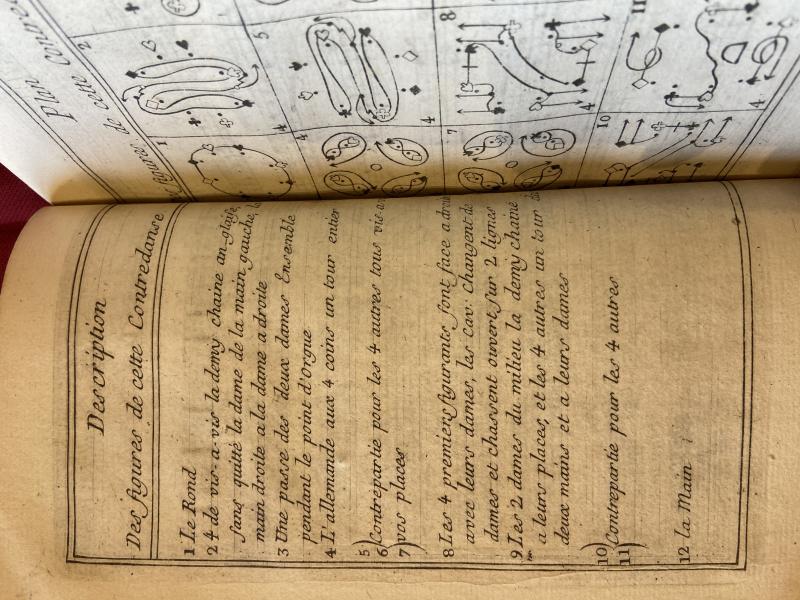 Description
Des figures de cette Contredanse
1 Le Rond
2 4 de vis-a-vis la demy chaine an-glaise,
sans quitté la dame de la main gauche, la
main droite a la dame a droite
3 Une passe des deux dames Ensemble
pendant le point d'orgue
4 L'allemande aux 4 coins un tour entier
5)
6) Contrepartie pour les 4 autres tous vis-a-
7) vos places
8 Les 4 premiers figurants font face a droit
avec leurs dames, les cav: changent de
dames et chassent ouvert sur 2 lignes
9 Les 2 dames du milieu la demy chaine
a leurs places, et les 4 autres un tour de
deux mains et a leurs dames
10)
11) Contrepartie pour les 4 autres
12 la Main
Plan
figures de cette Contre
1
2
4
5
4
7
8
4
10
11
4